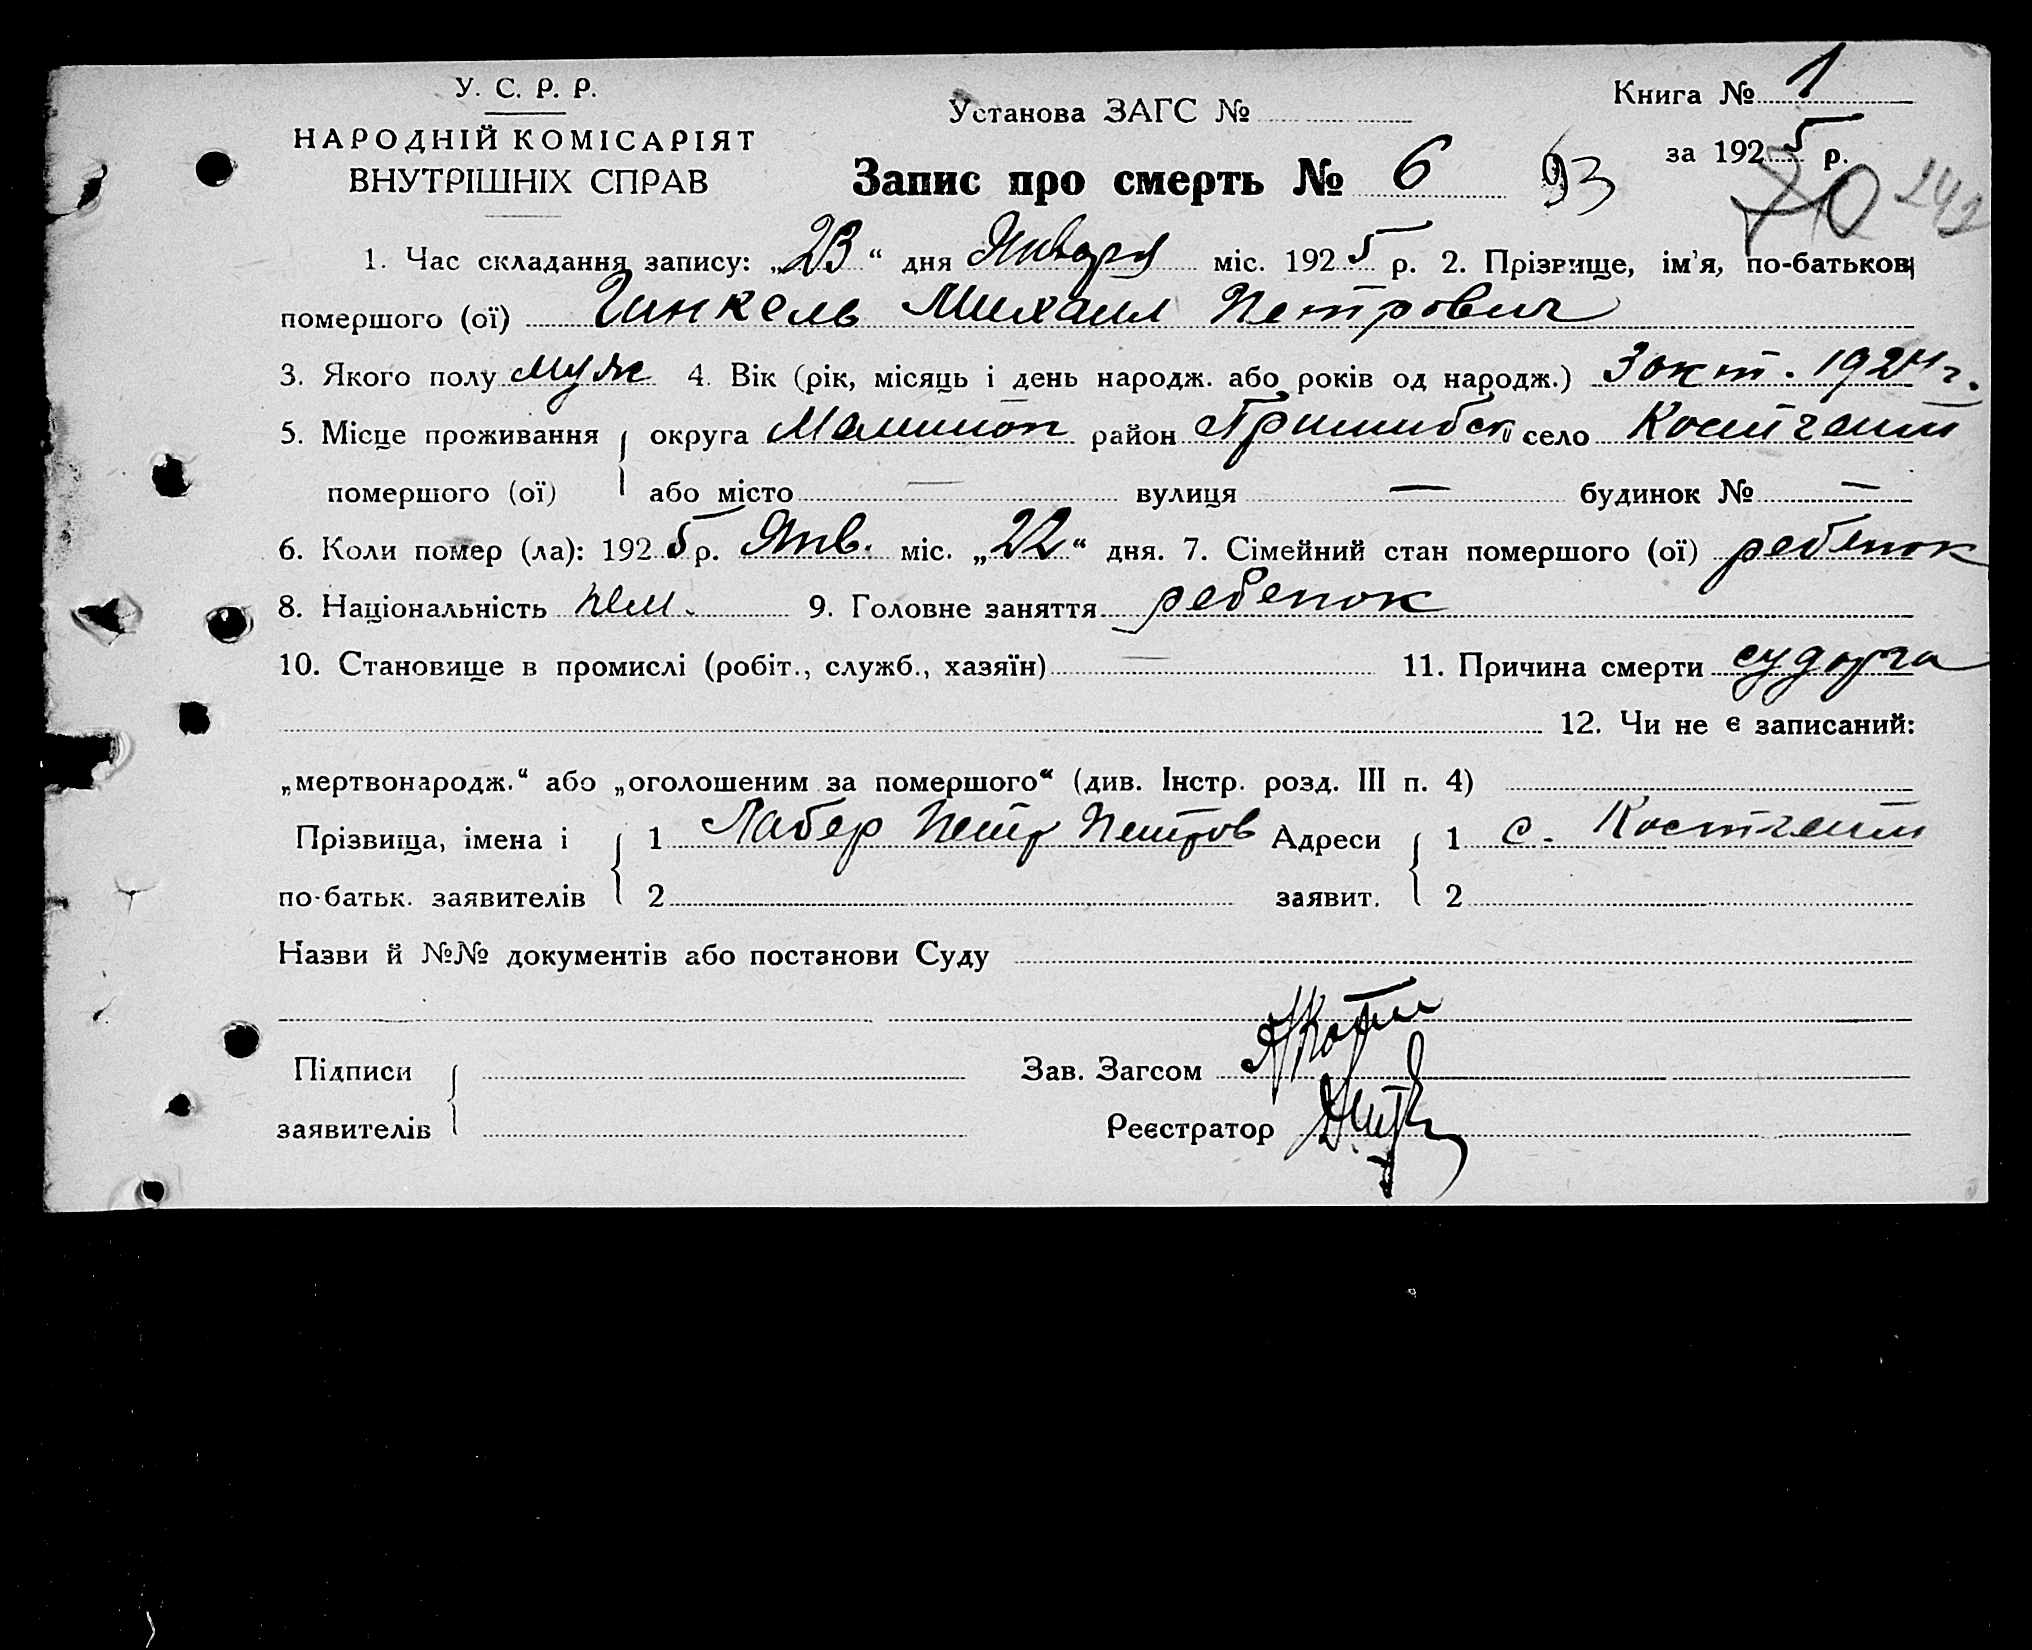 У. С. Р. Р.
НАРОДНІЙ КОМІСАРІЯТ
ВНУТРІШНІХ СПРАВ
Установа ЗАГС №
Книга № 1
за 1925 р.
Запис про смерть № 6 93
70 242
1. Час складання запису: „23“ дня Января міс. 1925 р. 2. Прізвище, ім'я, по-батькові
помершого (ої) Гинкель Михаил Петрович
3. Якого полу муж 4. Вік (рік, місяць і день народж. або років од народж.) 3 окт. 1924 г.
5. Місце проживання округа район Пришибск село Костгейм
помершого (ої) або місто — вулиця — будинок № —
6. Коли помер (ла): 1925 р. Янв. міс. „22“ дня. 7. Сімейний стан помершого (ої) ребенок
8. Національність нем. 9. Головне заняття ребенок
10. Становище в промислі (робіт., служб., хазяїн) — 11. Причина смерти судорга
12. Чи не є записаний:
„мертвонародж.“ або „оголошеним за помершого“ (див. Інстр. розд. III п. 4)
Прізвища, імена і 1 Лабер Петр Петров Адреси 1 с. Костгейм
по-батьк. заявителів 2 заявит. 2
Назви й №№ документів або постанови Суду
Підписи Зав. Загсом
заявителів Реєстратор